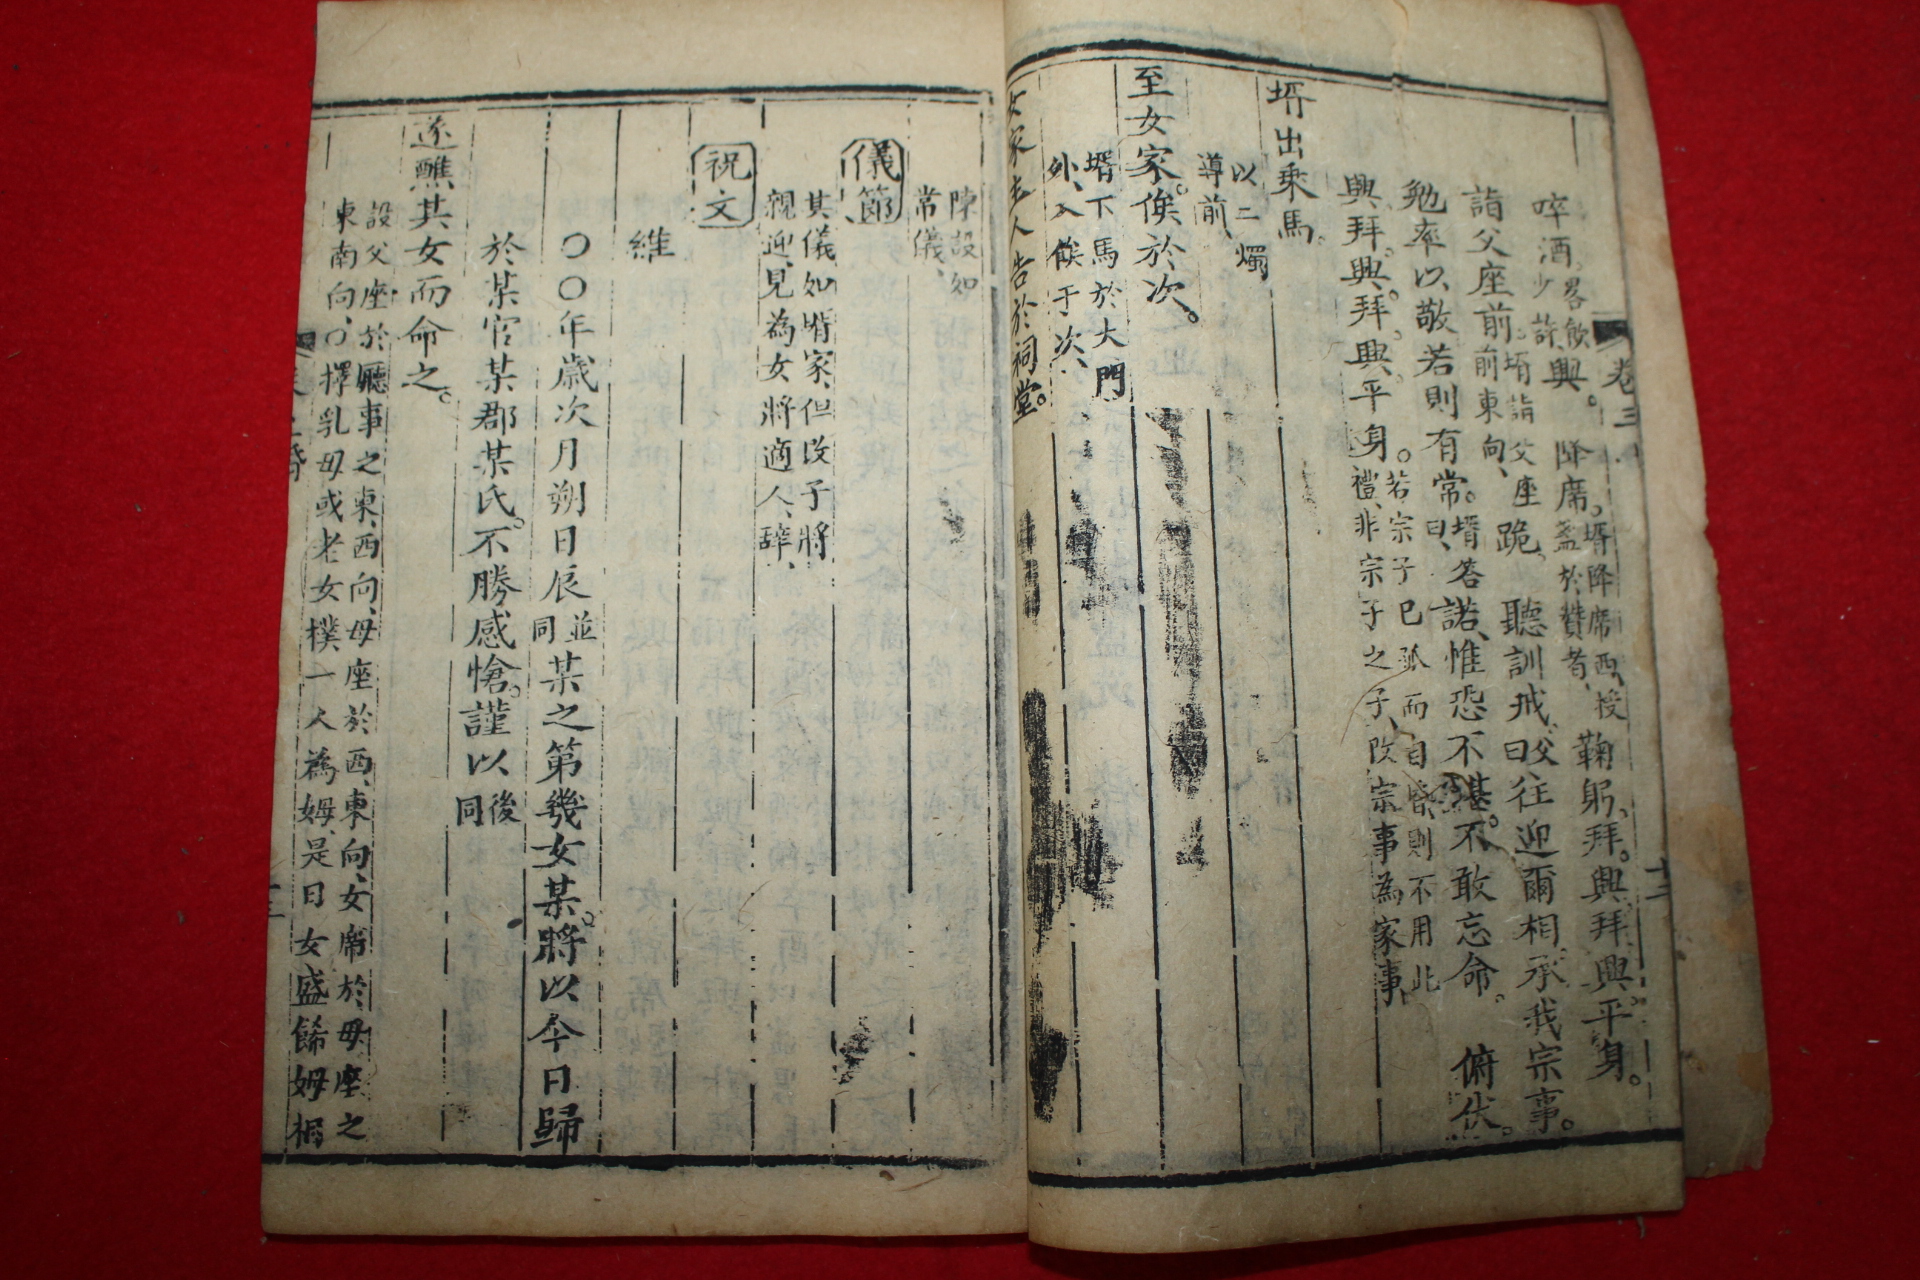 卷三
十二
啐酒畧飲少許興。降席。壻降席西授盞於贊者鞠躬拜。興拜。興平身。
詣父座前。壻詣父座前東向跪聽訓戒父曰往迎爾相承我宗事。
勉率以敬若則有常。壻荅曰諾惟恐不堪。不敢忘命。俯伏。
興拜。興拜。興平身。若宗子已孤而自昏則不用此禮非宗子之子改宗事為家事
壻出乘馬
以二燭導前
至女家俟於次。
壻下馬於大門外入俟于次
女家主人告於祠堂。
陳設如常儀
儀節
其儀如壻家但改子將親迎見為女將適人辭
祝文
維
〇〇年歲次月朔日辰並同某之第幾女某將以今日歸
於某官某郡某氏。不勝感愴。謹以後同
遂醮其女而命之。
設父座於廳事之東西向母座於西東向女席於母座之
東南向〇擇乳母或老女僕一人為姆是日女盛餙姆相